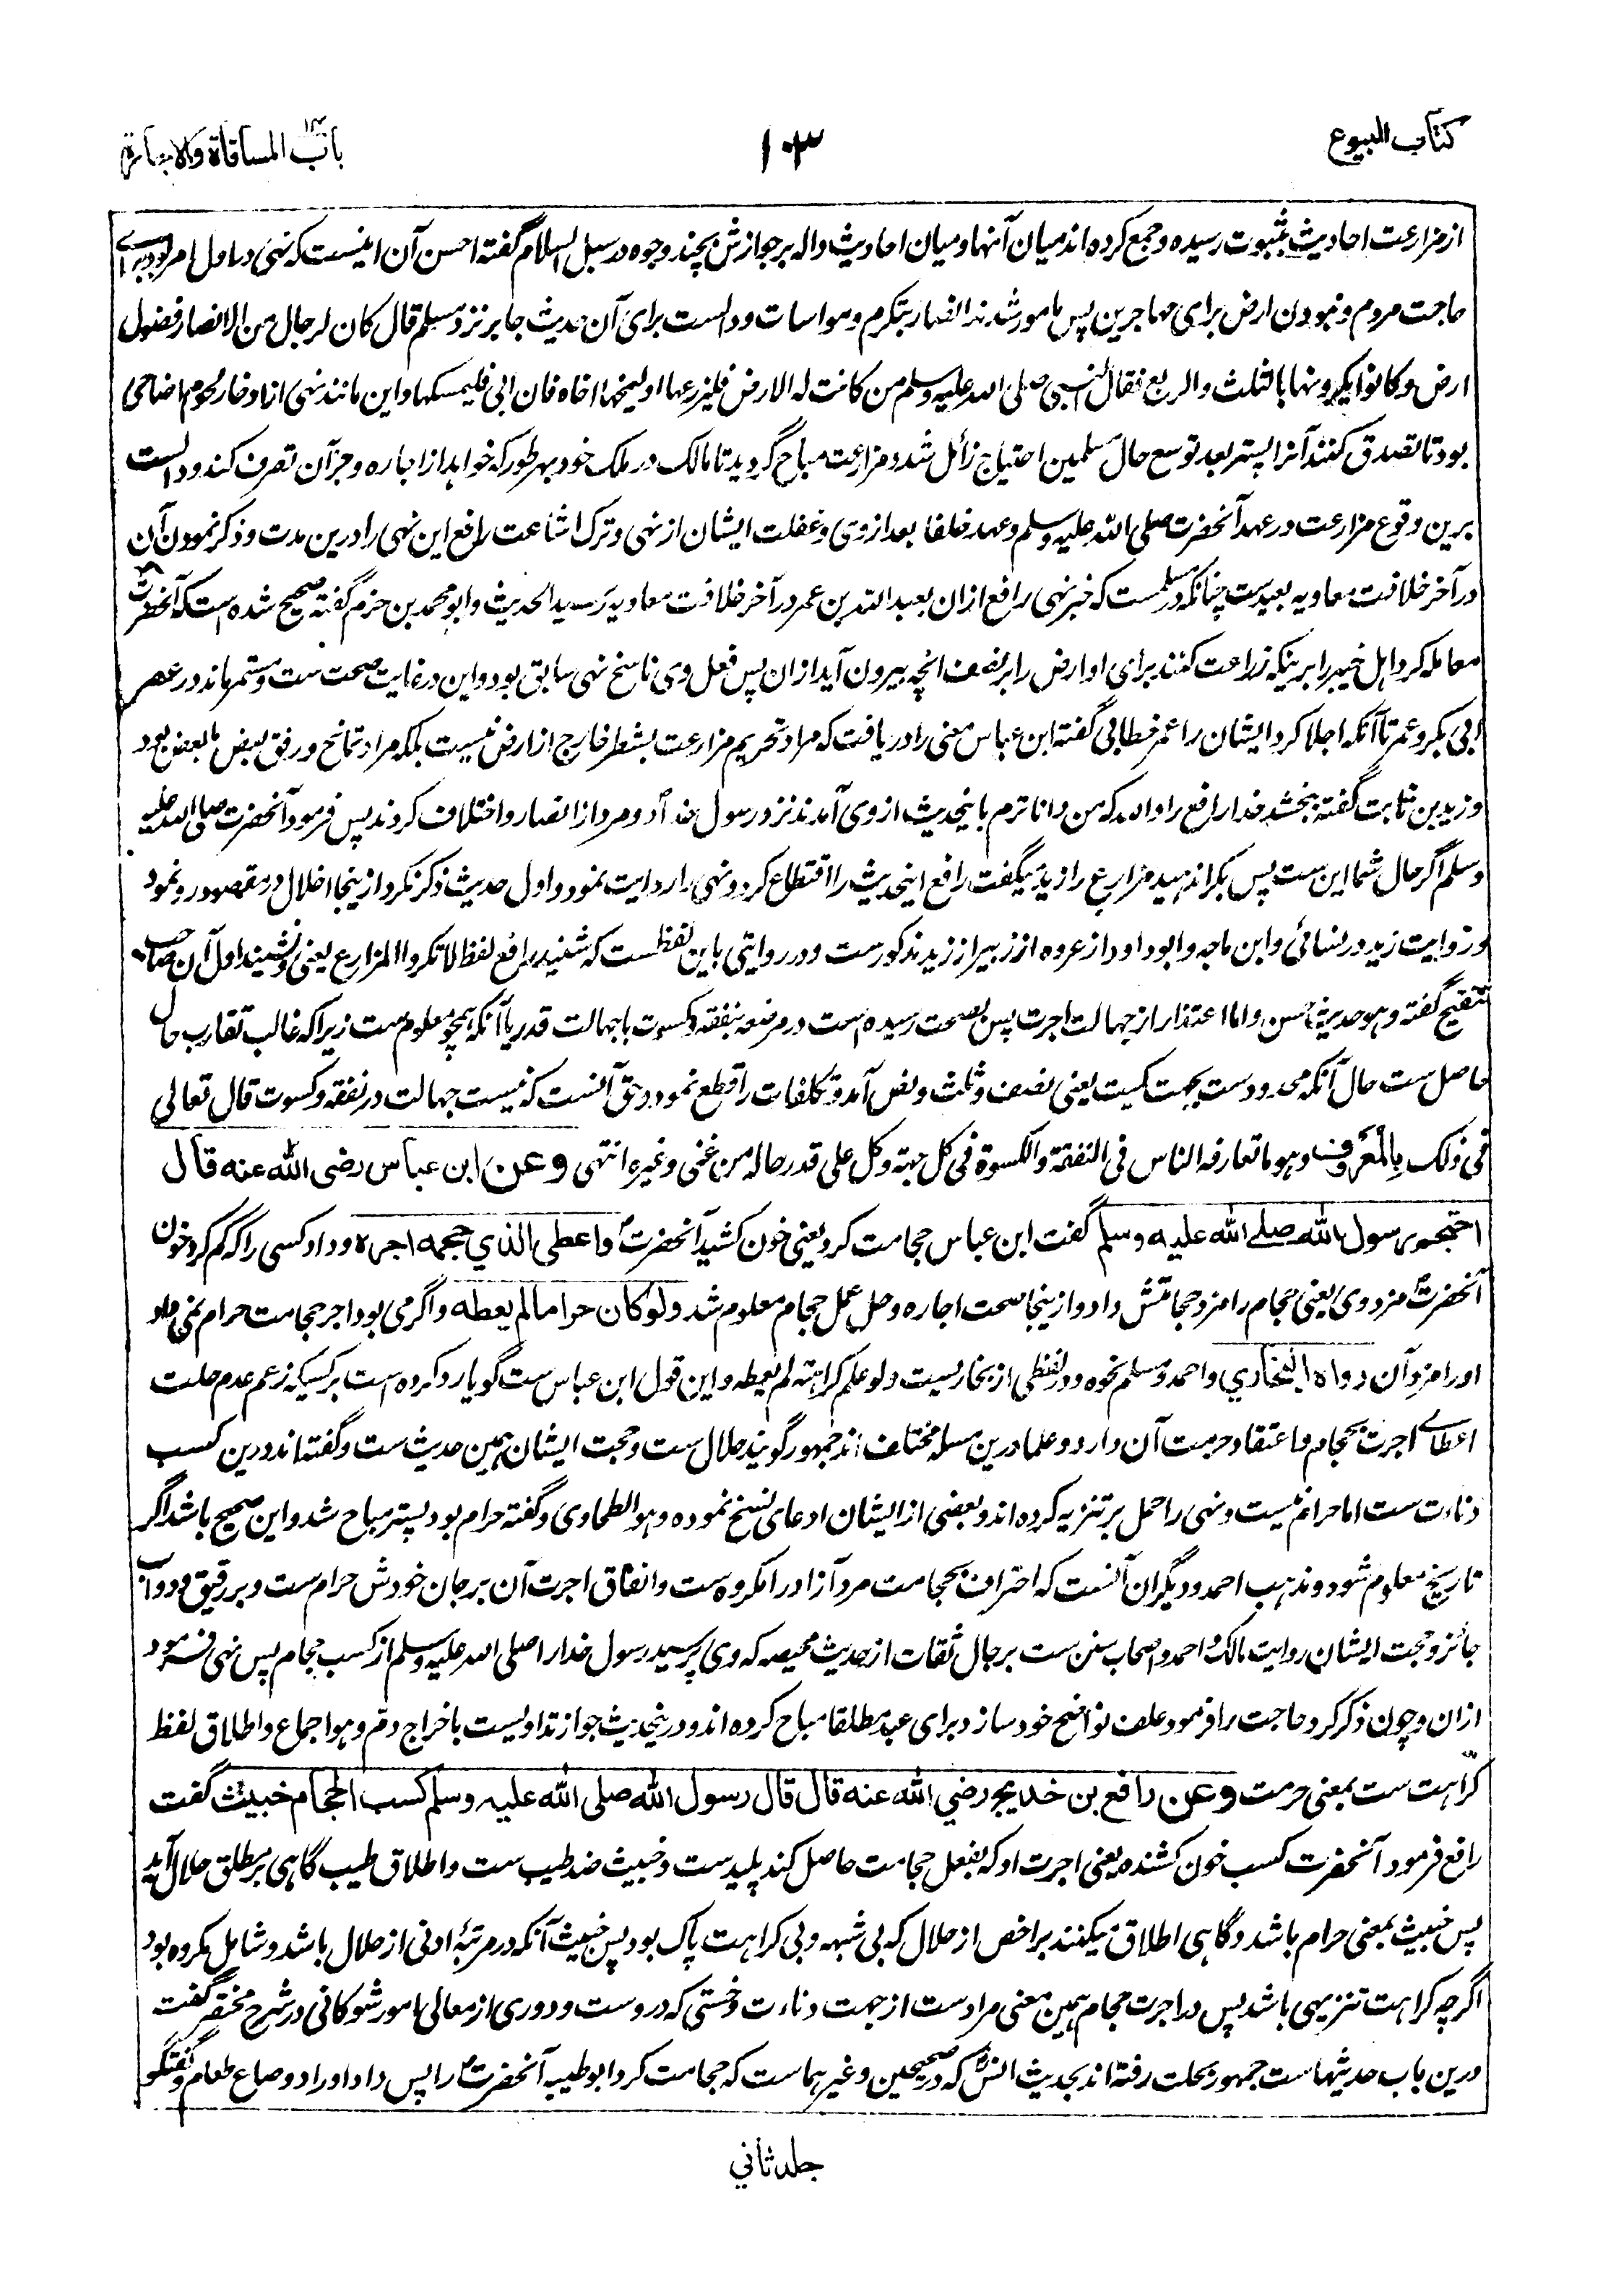 کتاب البیوع
۱۰۳
باب المساقاة والاجارة
از مزارعت احادیث بثبوت رسیده و جمع کرده اند میان آنها و میان احادیث داله بر جوازش بچند وجوه در سبل السلام گفته احسن آن اینست که نهی در اول امر بود برای
حاجت مردم و نبودن ارض برای مهاجرین پس مامور شدند انصار بتکرم و مواسات و دالست برای آن حدیث جابر نزد مسلم قال کان لرجال من الانصار فضول
ارض و کانوا یکرونها بالثلث والربع فقال النبی صلی الله علیه وسلم من کانت له الارض فلیزرعها او لیمنحها اخاه فان ابی فلیمسکها و این مانند نهی از ادخار لحوم اضاحی
بود تا تصدق کنند آنرا پستر بعد توسع حال مسلمین احتیاج زائل شد و مزارعت مباح گردید تا مالک در ملک خود بهر طور که خواهد از اجاره و جز آن تصرف کند و دالست
برین وقوع مزارعت در عهد آنحضرت صلی الله علیه وسلم و عهد خلفا بعد از وی و غفلت ایشان از نهی و ترک اشاعت رافع این نهی را درین مدت و ذکر نمودن آن
در آخر خلافت معاویه بعیدست چنانکه در مسلمست که خبر نهی رافع ازان بعبد الله بن عمر در آخر خلافت معاویه رسید الحدیث و ابو محمد بن حزم گفته صحیح شده است که آنحضرت
معامله کرد اهل خیبر را برینکه زراعت کنند برای او ارض را بر نصف انچه بیرون آید ازان پس فعل وی ناسخ نهی سابق بود و این در غایت صحت ست و مستمر ماند در عصر
ابی بکر و عمر تا آنکه اجلا کرد ایشان را عمر خطابی گفته ابن عباس معنی را دریافت که مراد تحریم مزارعت بشطر خارج از ارض نیست بلکه مراد تمانح و رفق بعض بالبعض بود
و زید بن ثابت گفته ببخشد خدا رافع را والله که من داناترم باینحدیث از وی آمدند نزد رسول خدا دو مرد از انصار و اختلاف کردند پس فرمود آنحضرت صلی الله علیه
وسلم اگر حال شما این ست پس بکرا ندهید مزارع را زید میگفت رافع اینحدیث را اقتطاع کرد و نهی را روایت نمود و اول حدیث ذکر نکرد ازینجا اخلال در مقصود رو نمود
و روایت زید در نسائی و ابن ماجه و ابو داود از عروه از زبیر از زید مذکورست و در روایتی باین لفظ ست که شنید رافع لفظ لا تکروا المزارع یعنی و نشنید اول آن صاحب
تنقیح گفته و هو حدیث حسن و اما اعتذار از جهالت اجرت پس بصحت رسیده است در مرضعه بنفقه و کسوت با جهالت قدر یا آنکه همچو معلوم ست زیرا که غالب تقارب حال
حاصل ست حال آنکه محدودست بجهت کمیت یعنی نصف و ثلث و نص آمد و تکلفات را قطع نمود و حق آنست که نیست جهالت در نفقه و کسوت قال تعالی
فی ذلک بالمعروف و هو ما تعارفه الناس فی النفقة والکسوة فی کل جهة و کل علی قدر حاله من غنی و غیره انتهی وعن ابن عباس رضی الله عنه قال
احتجم رسول الله صلی الله علیه وسلم گفت ابن عباس حجامت کرد یعنی خون کشید آنحضرت واعطی الذی حجمه اجره و داد کسی را که کم کرد خون
آنحضرت مزد وی یعنی حجام را مزد حجامتش داد و ازینجا صحت اجاره و حل عمل حجام معلوم شد ولو کان حراما لم یعطه و اگر می بود اجر حجامت حرام نمی داد
او را مزد آن رواه البخاري و احمد و مسلم نحوه و در لفظی از بخاریست و لو علم کراهته لم یعطه و این قول ابن عباس ست گویا رد کرده است بر کسیکه زعم عدم حلت
اعطای اجرت بحجام و اعتقاد حرمت آن دارد و علما درین مسله مختلف اند جمهور گویند حلال ست و حجت ایشان همین حدیث ست و گفته اند درین کسب
دناءت ست اما حرام نیست و نهی را حمل بر تنزیه کرده اند و بعضی از ایشان ادعای نسخ نموده و هو الطحاوی و گفته حرام بود پستر مباح شد و این صحیح باشد اگر
تاریخ معلوم شود و مذهب احمد و دیگران آنست که احتراف بحجامت مرد آزاد را مکروه ست و انفاق اجرت آن بر جان خودش حرام ست و بر رقیق و دواب
جائز و حجت ایشان روایت مالک و احمد و اصحاب سنن ست برجال ثقات از حدیث محیصه که وی پرسید رسول خدا را صلی الله علیه وسلم از کسب حجام پس نهی فرمود
ازان و چون ذکر کرد حاجت را فرمود علف نواضح خود سازد و برای عبد مطلقا مباح کرده اند و درینحدیث جواز تداویست باخراج دم و هو اجماع و اطلاق لفظ
کراهت ست بمعنی حرمت وعن رافع بن خدیج رضی الله عنه قال قال رسول الله صلی الله علیه وسلم کسب الحجام خبیث گفت
رافع فرمود آنحضرت کسب خون کشنده یعنی اجرت او که بفعل حجامت حاصل کند پلیدست و خبیث ضد طیب ست و اطلاق طیب گاهی بر مطلق حلال آید
پس خبیث بمعنی حرام باشد و گاهی اطلاق میکنند بر اخص از حلال که بی شبهه و بی کراهت پاک بود پس خبیث آنکه در مرتبۀ ادنی از حلال باشد و شامل مکروه بود
اگرچه کراهت تنزیهی باشد پس در اجرت حجام همین معنی مرادست از جهت دناءت و خستی که دروست و دوری از معالی امور شوکانی در شرح مختصر گفت
درین باب حدیثهاست جمهور بحلت رفته اند بحدیث انس که در صحیحین و غیرهماست که حجامت کرد ابو طیبه آنحضرت را پس داد او را دو صاع طعام و گفتگو
جلد ثانی